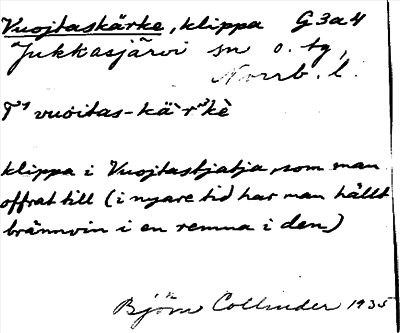 Vuojtaskärke, klippa G3a4
Jukkasjärvi sn o. tg,
Norrb. l.
vuoitas-kä`r'kè
klippa i Vuojtastjåtja, som man
offrat till (i nyare tid har man hällt
brännvin i en remna i den.)
Björn Collinder 1935